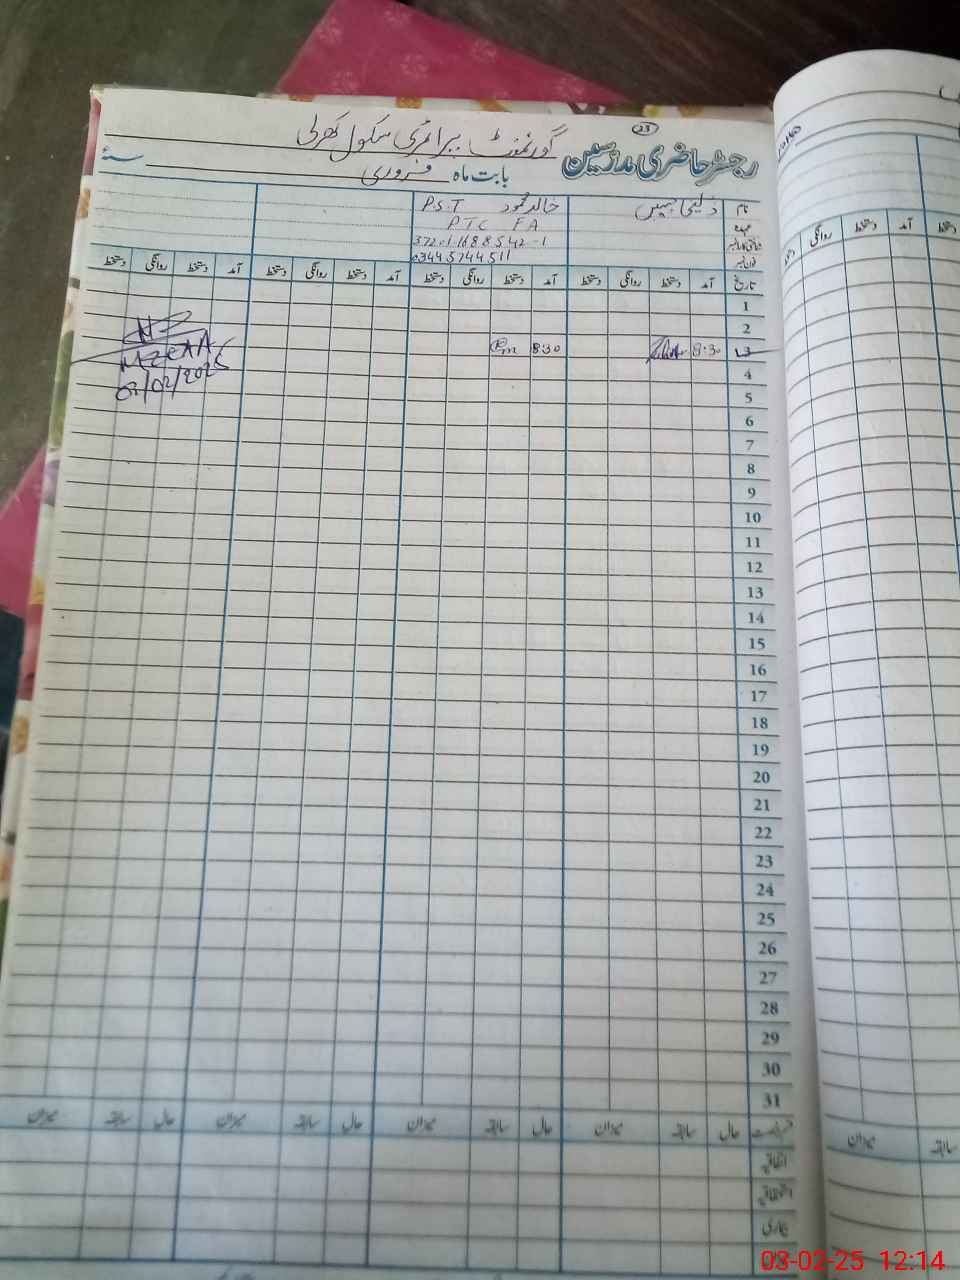 23
رجسٹر حاضری مدرسین گورنمنٹ پرائمری سکول کھرلی
بابت ماہ فروری سنۂ
نام خالد محمود P.S.T
عہدہ PTC FA
شناختی کارڈ نمبر 37201-1688542-1
فون نمبر 03445744511
تاریخ آمد دستخط روانگی دستخط آمد دستخط روانگی دستخط آمد دستخط روانگی دستخط آمد دستخط روانگی دستخط
1
2
3 8:30 8:30
4
5
6
7
8
9
10
11
12
13
14
15
16
17
18
19
20
21
22
23
24
25
26
27
28
29
30
31
MZEAA
03/02/2025
حال سابقہ میزان حال سابقہ میزان حال سابقہ میزان حال سابقہ میزان
اتفاقیہ
استحقاقیہ
بیماری
روانگی دستخط آمد دستخط
میزان سابقہ
03-02-25 12:14